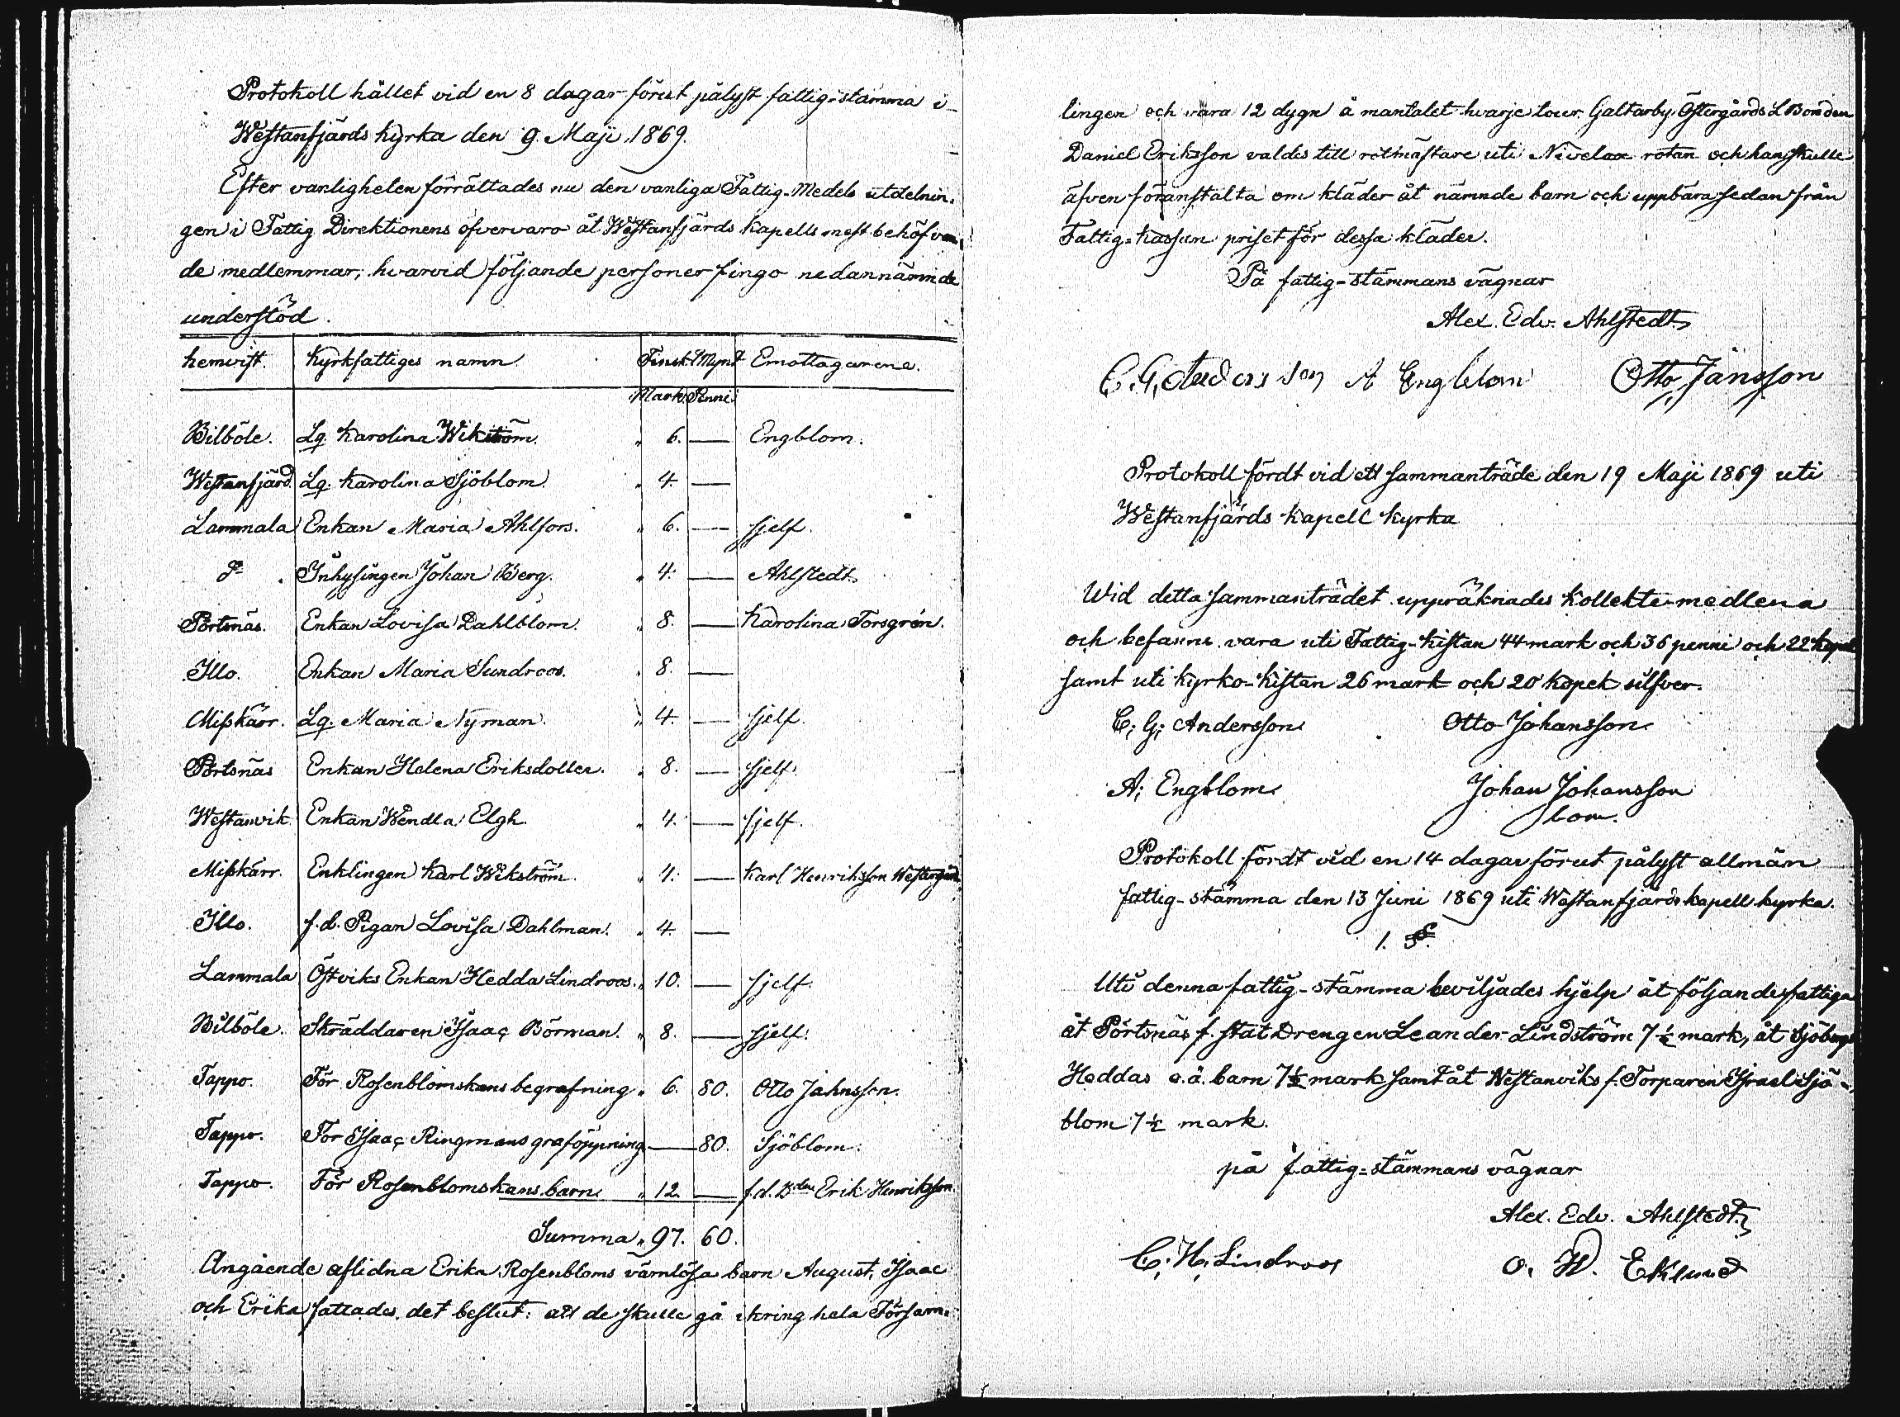 Protokoll hållet vid en 8 dagar förut pålyst fattig-stämma i
Westanfjärds kyrka den 9. Maji 1869.
Efter vanligheten förrättades nu den vanliga Fattig-Medels utdelnin-
gen i Fattig Direktionens öfvervaro åt Westanfjärds Kapells mest behöfvan-
de medlemmar, hvarvid följande personer fingo nedannämnde
understöd.
hemvist. Kyrkfattiges namn. Finskt Mynt Emottagarene.
Mark. Penni.
Bilböle. Lq. Karolina Wikström. „ 6. — Engblom.
Westanfjärd. Lq. Karolina Sjöblom „ 4. —
Lammala Enkan Maria Ahlfors. „ 6. — sjelf.
do. Inhysingen Johan Berg. „ 4. — Ahlstedt.
Pörtsnäs. Enkan Lovisa Dahlblom. „ 8. — Karolina Torsgrén.
Illo. Enkan Maria Sundroos. „ 8. —
Misskärr. Lq. Maria Nyman. „ 4. — sjelf.
Pörtsnäs Enkan Helena Eriksdotter. „ 8. — sjelf.
Westanvik. Enkan Wendla Elgh „ 4. — sjelf.
Misskärr. Enklingen Karl Wikström. „ 4. — Karl Henriksson Westergård
Illo. f.d. Pigan Lovisa Dahlman. „ 4. —
Lammala Östviks Enkan Hedda Lindroos. „ 10. — sjelf.
Bilböle. Skräddaren Isaac Börman. „ 8. — sjelf.
Tappo. För Rosenblomskans begrafning „ 6. 80. Otto Jahnsson.
Tappo. För Isaac Ringmans graföppning — 80. Sjöblom.
Tappo. För Rosenblomskans barn. „ 12. — f.d. Bdn Erik Henriksson.
Summa „ 97. 60.
Angående aflidna Erika Rosenbloms värnlösa barn August, Isaac
och Erika fattades det beslut: att de skulle gå ikring hela Försam-
lingen och vara 12 dygn å mantalet hvarje tour. Galtarby Östergårds L Bonden
Daniel Eriksson valdes till rotmästare uti Nivelax rotan och han skulle
äfven föranstalta om kläder åt nämnde barn och uppbära sedan från
Fattig-Kassan priset för dessa kläder.
På fattig-stämmans vägnar
Alex. Edv. Ahlstedt
C. G. Andersson A Engblom Otto Jansson
Protokoll fördt vid ett sammanträde den 19 Maji 1869 uti
Westanfjärds Kapell kyrka
Wid detta sammanträdet uppräknades Kollekte-medlena
och befanns vara uti Fattig-Kistan 44 mark och 36 penni och 22 kopek
samt uti Kyrko-Kistan 26 mark och 20 kopek silfver.
C; G; Andersson Otto Johansson
A; Engblom Johan Johansson
bom.
Protokoll fördt vid en 14 dagar förut pålyst allmän
fattig-stämma den 13 Juni 1869 uti Westanfjärds kapell kyrka.
1. §.
Uti denna fattig-stämma beviljades hjelp åt följande fattiga
åt Pörtsnäs f. stat Drengen Leander Lindström 7 ½ mark, åt Sjöbergs
Heddas o.ä. barn 7 ½ mark samt åt Westanviks f. Torparen Israel Sjö-
blom 7 ½ mark.
på fattig-stämmans vägnar
Alex. Edv. Ahlstedt
C. H. Lindroos O. W. Eklund